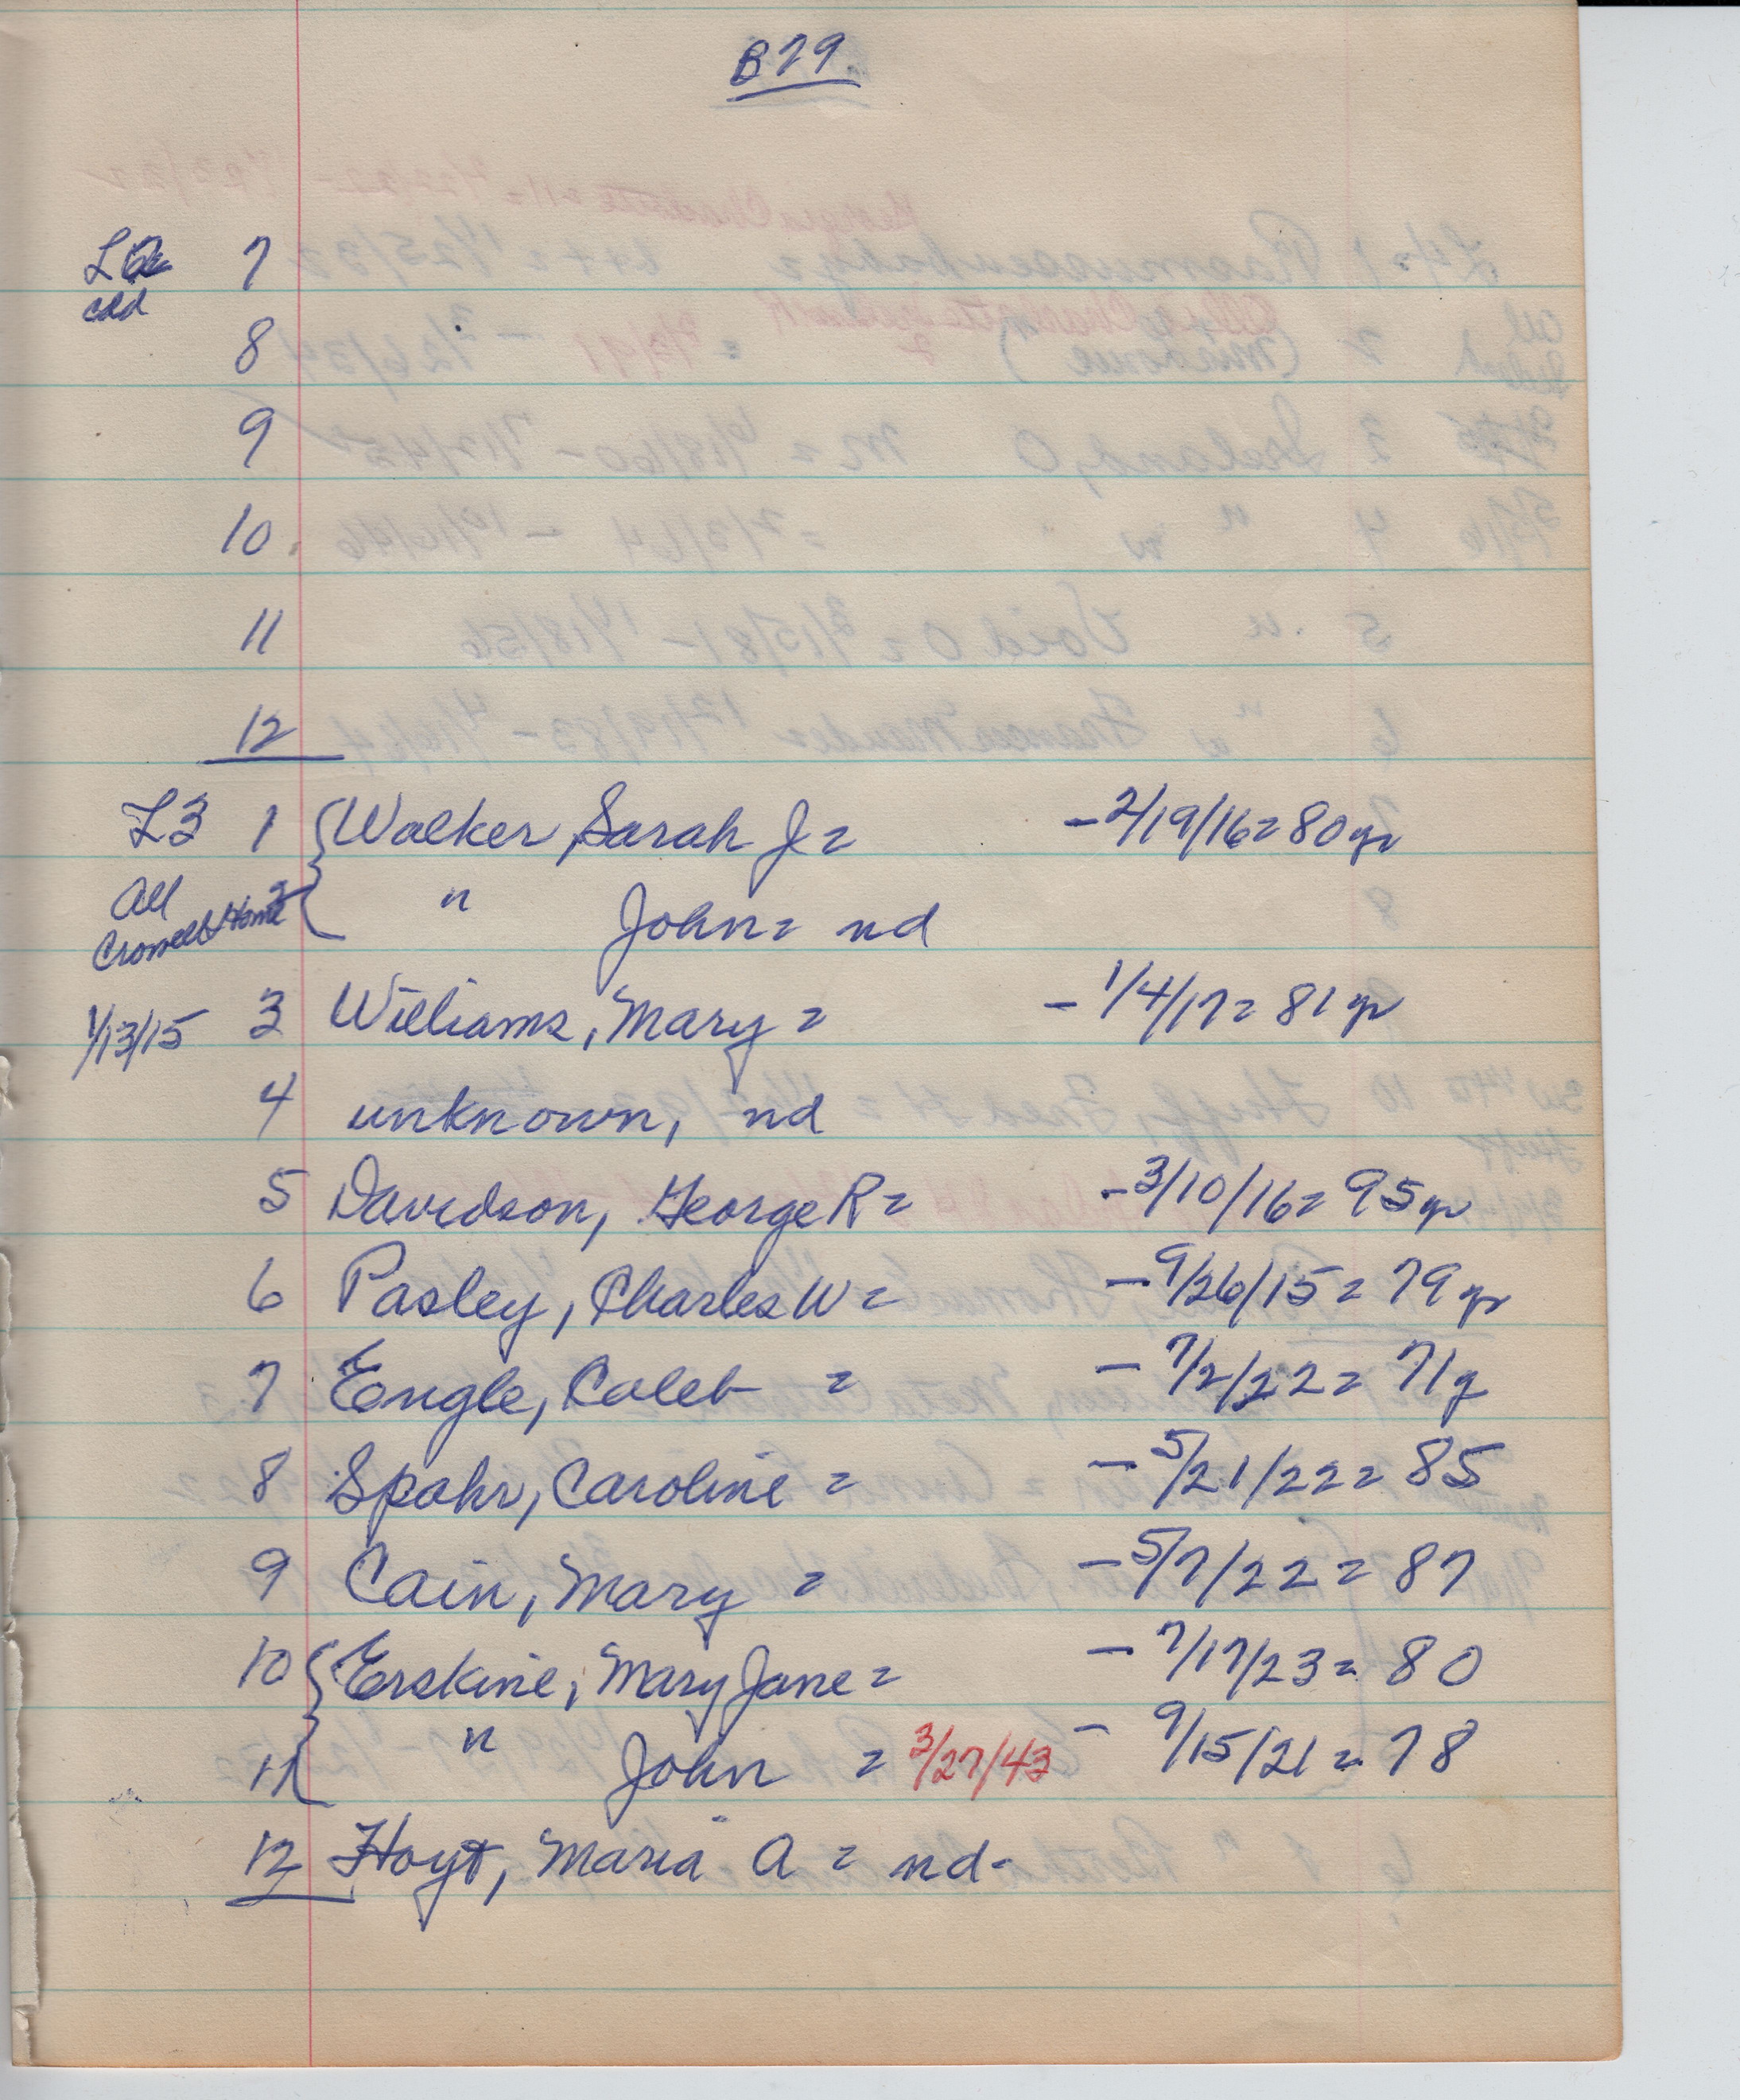 B79
L2 7
cdd
8
9
10
11
12
L3 1 { Walker, Sarah J = - 2/19/16 = 80 yr
All 2 " John = nd
Crowell Home
1/13/15 3 Williams, Mary = - 1/4/17 = 81 yr
4 unknown, nd
5 Davidson, George R = - 3/10/16 = 95 yr
6 Pasley, Charles W = - 9/26/15 = 79 yr
7 Engle, Caleb = - 7/2/22 = 71 y
8 Spahr, Caroline = - 5/21/22 = 85
9 Cain, Mary = - 5/7/22 = 87
10 { Erskine, Mary Jane = - 7/17/23 = 80
11 " John = 3/27/43 - 9/15/21 = 78
12 Hoyt, Maria A = nd-